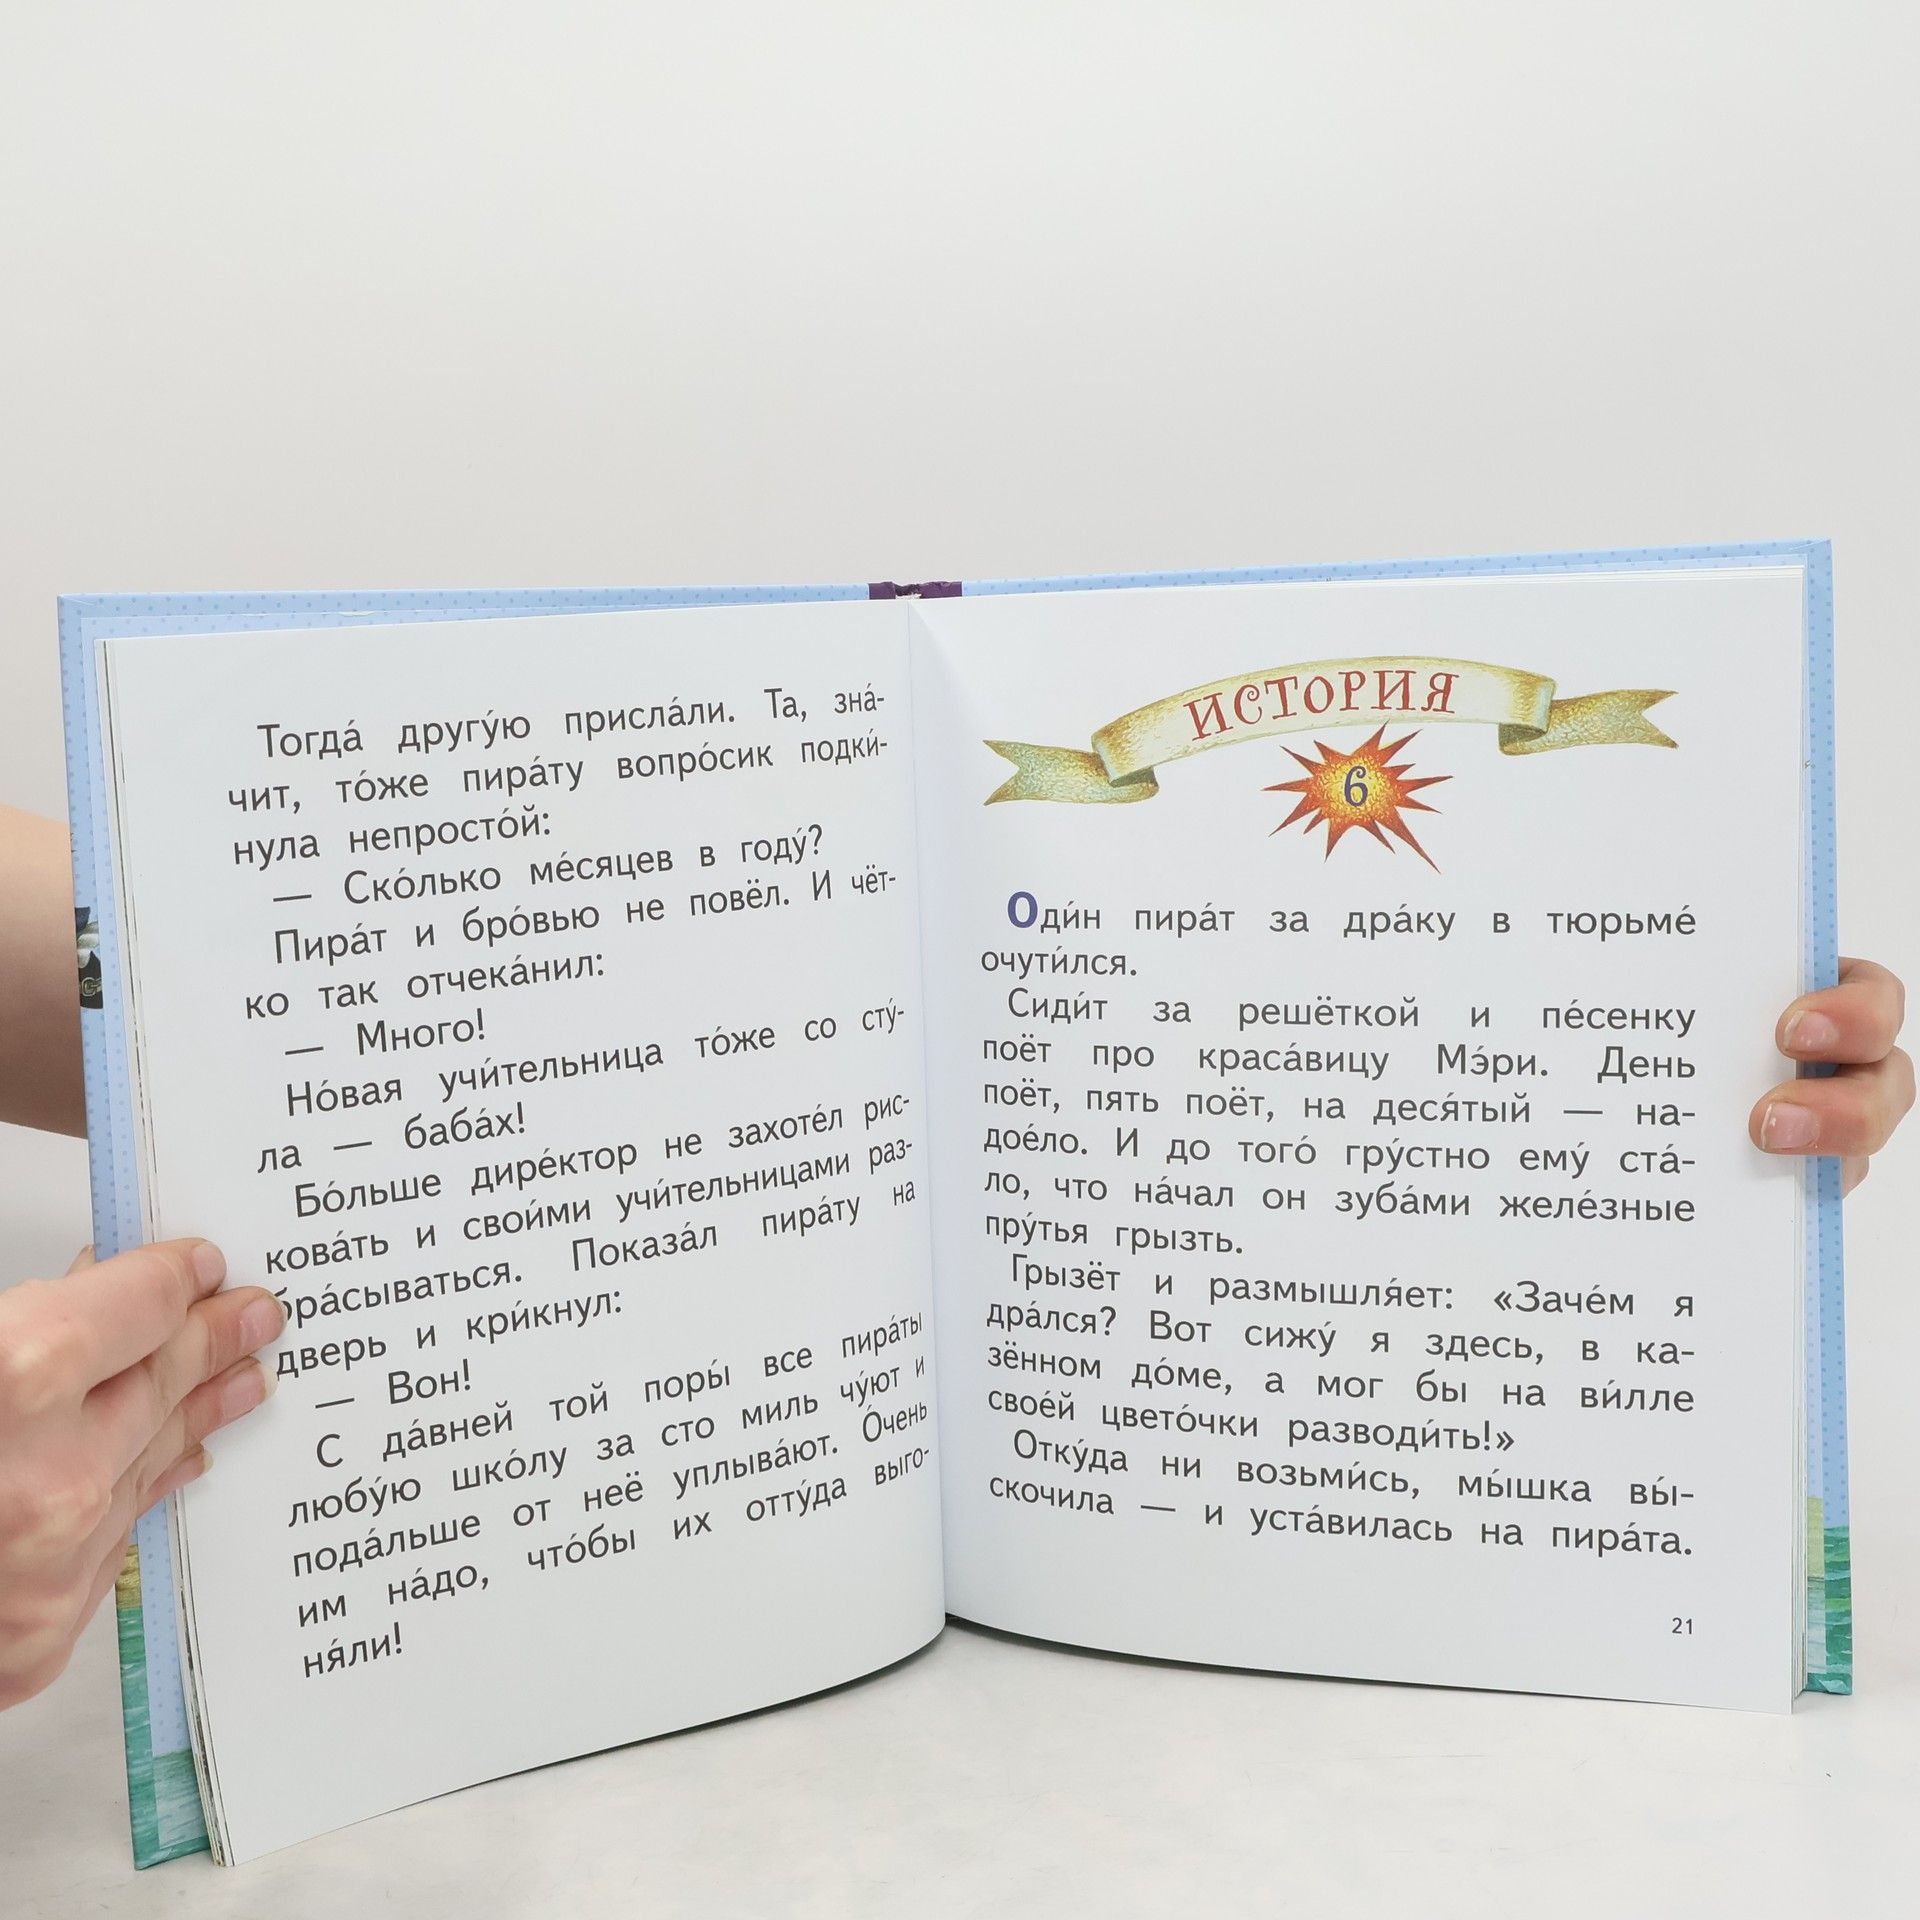 Тогда́ другу́ю присла́ли. Та, зна́-
чит, то́же пира́ту вопро́сик подки́-
нула непросто́й:
— Ско́лько ме́сяцев в году́?
Пира́т и бро́вью не повёл. И чёт-
ко так отчека́нил:
— Много!
Но́вая учи́тельница то́же со сту́-
ла — баба́х!
Бо́льше дире́ктор не захоте́л рис-
кова́ть и свои́ми учи́тельницами раз-
бра́сываться. Показа́л пира́ту на
дверь и кри́кнул:
— Вон!
С да́вней той поры́ все пира́ты
любу́ю шко́лу за сто миль чу́ют и
пода́льше от неё уплыва́ют. О́чень
им на́до, что́бы их отту́да выго-
ня́ли!
ИСТОРИЯ
6
Оди́н пира́т за дра́ку в тюрьме́
очути́лся.
Сиди́т за решёткой и пе́сенку
поёт про краса́вицу Мэ́ри. День
поёт, пять поёт, на деся́тый — на-
дое́ло. И до того́ гру́стно ему́ ста́-
ло, что на́чал он зуба́ми желе́зные
пру́тья грызть.
Грызёт и размышля́ет: «Заче́м я
дра́лся? Вот сижу́ я здесь, в ка-
зённом до́ме, а мог бы на ви́лле
свое́й цвето́чки разводи́ть!»
Отку́да ни возьми́сь, мы́шка вы́-
скочила — и уста́вилась на пира́та.
21